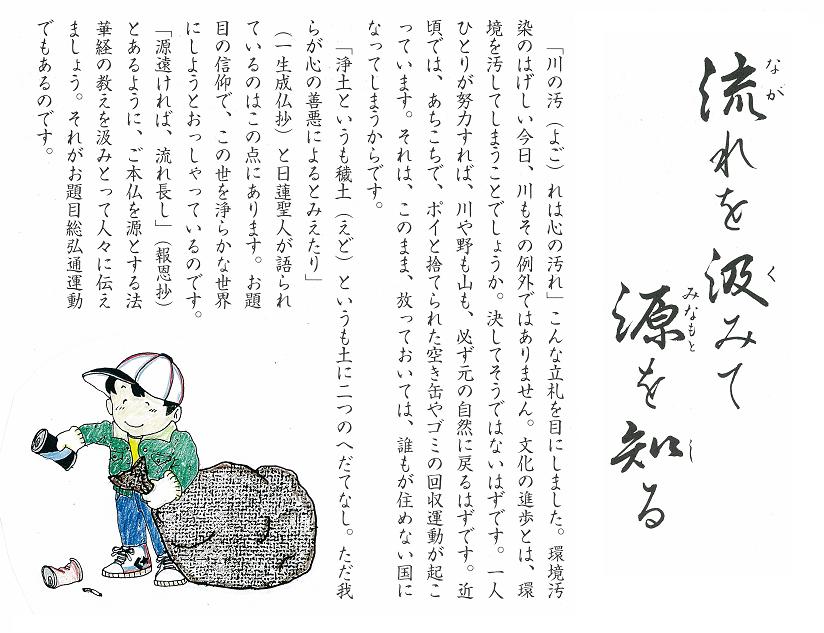 流れを汲みて
なが
く
源を知る
みなもと
し
「川の汚（よご）れは心の汚れ」こんな立札を目にしました。環境汚
染のはげしい今日、川もその例外ではありません。文化の進歩とは、環
境を汚してしまうことでしょうか。決してそうではないはずです。一人
ひとりが努力すれば、川や野も山も、必ず元の自然に戻るはずです。近
頃では、あちこちで、ポイと捨てられた空き缶やゴミの回収運動が起こ
っています。それは、このまま、放っておいては、誰もが住めない国に
なってしまうからです。
「浄土というも穢土（えど）というも土に二つのへだてなし。ただ我
らが心の善悪によるとみえたり」
（一生成仏抄）と日蓮聖人が語られ
ているのはこの点にあります。お題
目の信仰で、この世を浄らかな世界
にしようとおっしゃっているのです。
「源遠ければ、流れ長し」（報恩抄）
とあるように、ご本仏を源とする法
華経の教えを汲みとって人々に伝え
ましょう。それがお題目総弘通運動
でもあるのです。